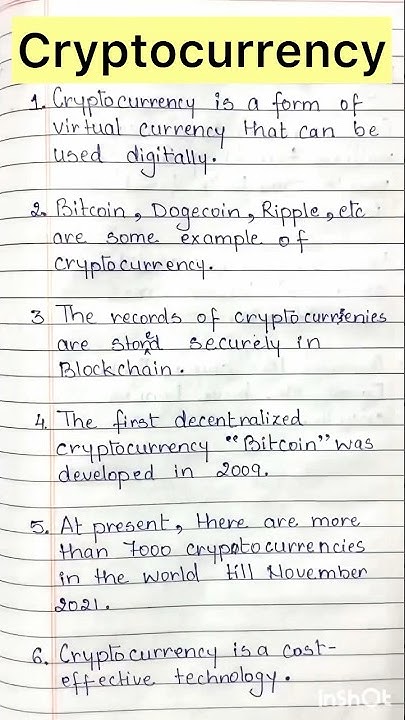 Cryptocurrency
1. Cryptocurrency is a form of
virtual currency that can be
used digitally.
2. Bitcoin, Dogecoin, Ripple, etc
are some example of
cryptocurrency.
3 The records of cryptocurrienies
are stored securely in
Blockchain.
4. The first decentralized
cryptocurrency "Bitcoin" was
developed in 2009.
5. At present, there are more
than 7000 cryptocurrencies
in the world till November
2021.
6. Cryptocurrency is a cost-
effective technology.
InShOt